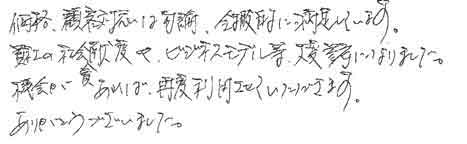 価格、顧客対応は勿論、全般的に満足しています。
貴社の社会貢献度や、ビジネスモデル等、大変参考になりました。
機会が あれば、再度利用させていただきます。
ありがとうございました。